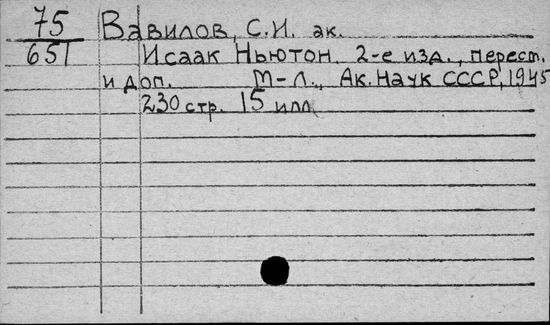 75 Вавилов, С.И. ак.
651 Исаак Ньютон. 2-е изд., перест.
и доп. М-Л., Ак. Наук СССР, 1945
230 стр. 15 илл.